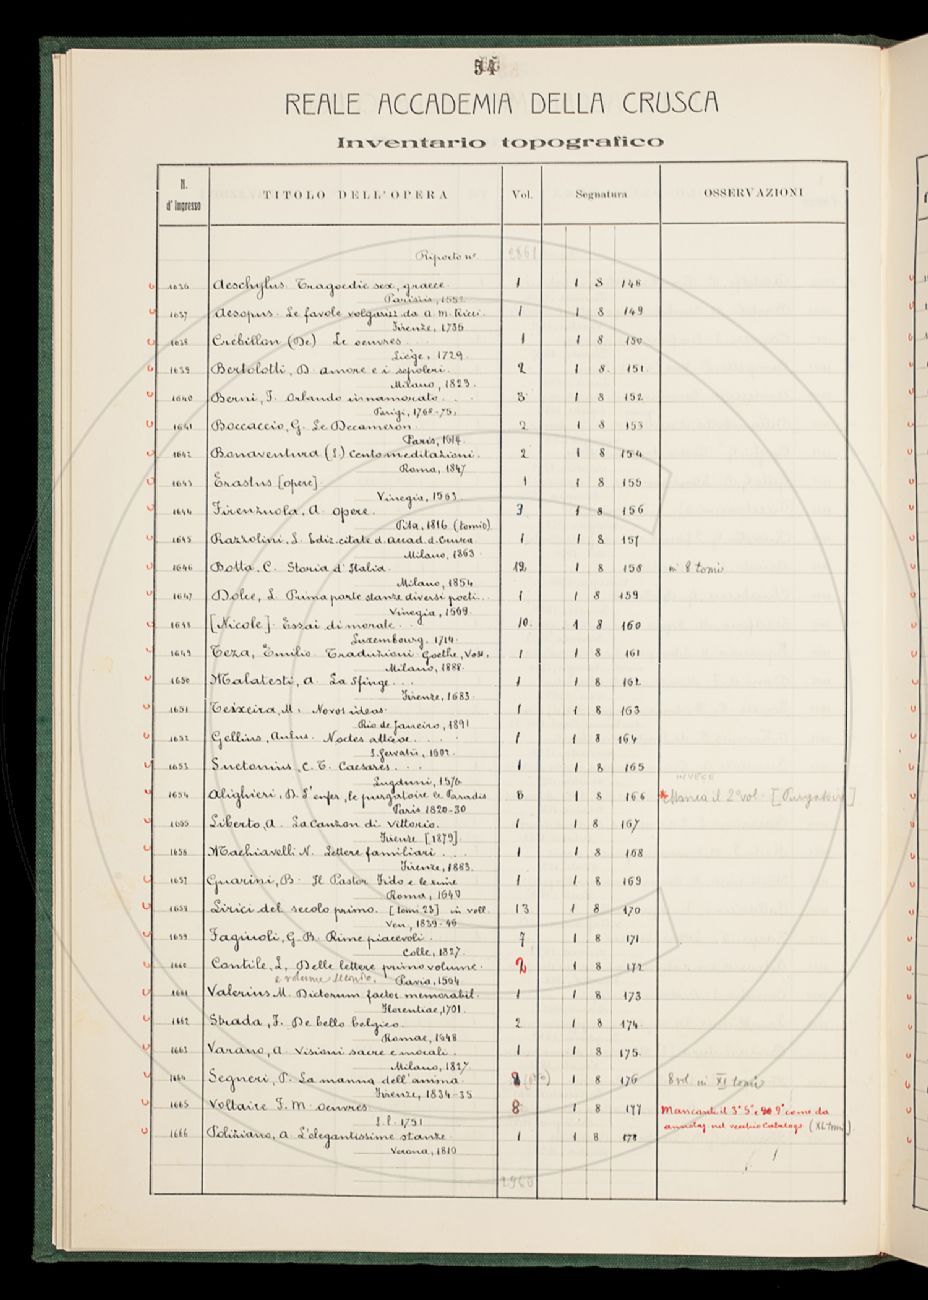 54
REALE ACCADEMIA DELLA CRUSCA
Inventario topografico
N. d'Ingresso TITOLO DELL'OPERA Vol. Segnatura OSSERVAZIONI
Riporto n. 2861
1636 Aeschylus. Tragoedie sex, graece. 1 1 8 148
Parisiis, 1552
1637 Aesopus. Le favole volgarizz. da A. M. Ricci. 1 1 8 149
Firenze, 1736
1638 Crébillon (De) Le oeuvres . . . 1 1 8 150
Liège, 1729.
1639 Bertolotti, D. amore e i sepolcri. 2 1 8. 151
Milano, 1823.
1640 Berni, F. Orlando innamorato. . . . 3 1 8 152
Parigi, 1768-75.
1641 Boccaccio, G. Le Decameron. 2 1 8 153
Paris, 1614.
1642 Bonaventura (S.) Cento meditazioni. 2 1 8 154
Roma, 1847
1643 Erastus [opere]. 1 1 8 155
Vinegia, 1563.
1644 Firenzuola, A. opere. 3 1 8 156
Pisa, 1816 (tomio)
1645 Razzolini, L. Ediz. citate d. Accad. d. Crusca. 1 1 8 157
Milano, 1863
1646 Botta, C. Storia d'Italia. 12. 1 8 158 in 8 tomi
Milano, 1854
1647 Dolce, L. Prima parte stanze diversi poeti . . 1 1 8 159
Vinegia, 1569.
1648 [Nicole]. Essai di morale . . . 10. 1 8 160
Luxembourg. 1714.
1649 Teza, Emilio. Traduzioni Goethe, Voss, 1 1 8 161
Milano, 1888.
1650 Malatesti, A. La Sfinge. . . 1 1 8 162
Firenze, 1683.
1651 Teixeira, M. Novos ideas. 1 1 8 163
Rio de Janeiro, 1891
1652 Gellius, Aulus. Noctes atticae. . . . . 1 1 8 164
S. Gervatii, 1602.
1653 Suetonius, C. T. Caesares. . . . 1 1 8 165
Lugduni, 1576
invece
1654 Alighieri, D. L'enfer, le purgatoire le Paradis 8 1 8 166 * Manca il 2° vol. [Purgatorio]
Paris 1820-30
1655 Liberto, A. La canzon di Vittorio. 1 1 8 167
Firenze [1879].
1656 Machiavelli N. Lettere familiari . . . 1 1 8 168
Firenze, 1883.
1657 Guarini, B. Il Pastor Fido e le rime 1 1 8 169
Roma, 1640
1658 Lirici del secolo primo. [tomi 23] in voll. 13 1 8 170
Ven., 1839-46
1659 Fagiuoli, G. B. Rime piacevoli. 7 1 8 171
Colle, 1827.
1660 Contile, L. Delle lettere primo volume. 2 1 8 172
e volume secondo. Pavia, 1564
1661 Valerius M. Dictorum factor. memorabil. 1 1 8 173
Florentiae, 1701.
1662 Strada, F. De bello belgico. 2 1 8 174
Romae, 1648
1663 Varano, A. Visioni sacre e morali. 1 1 8 175
Milano, 1827.
1664 Segneri, P. La manna dell'anima. 1 8 176 8 vol. in XI tomi
Firenze, 1834-35
1665 Voltaire F. M. oeuvres 8 1 8 177 Mancanti il 3° 5° e 9° come da
S. l. 1751 annotaz. nel vecchio Catalogo (XI tomi).
1666 Poliziano, A. L'elegantissime stanze. 1 1 8 178
Verona, 1810
2960